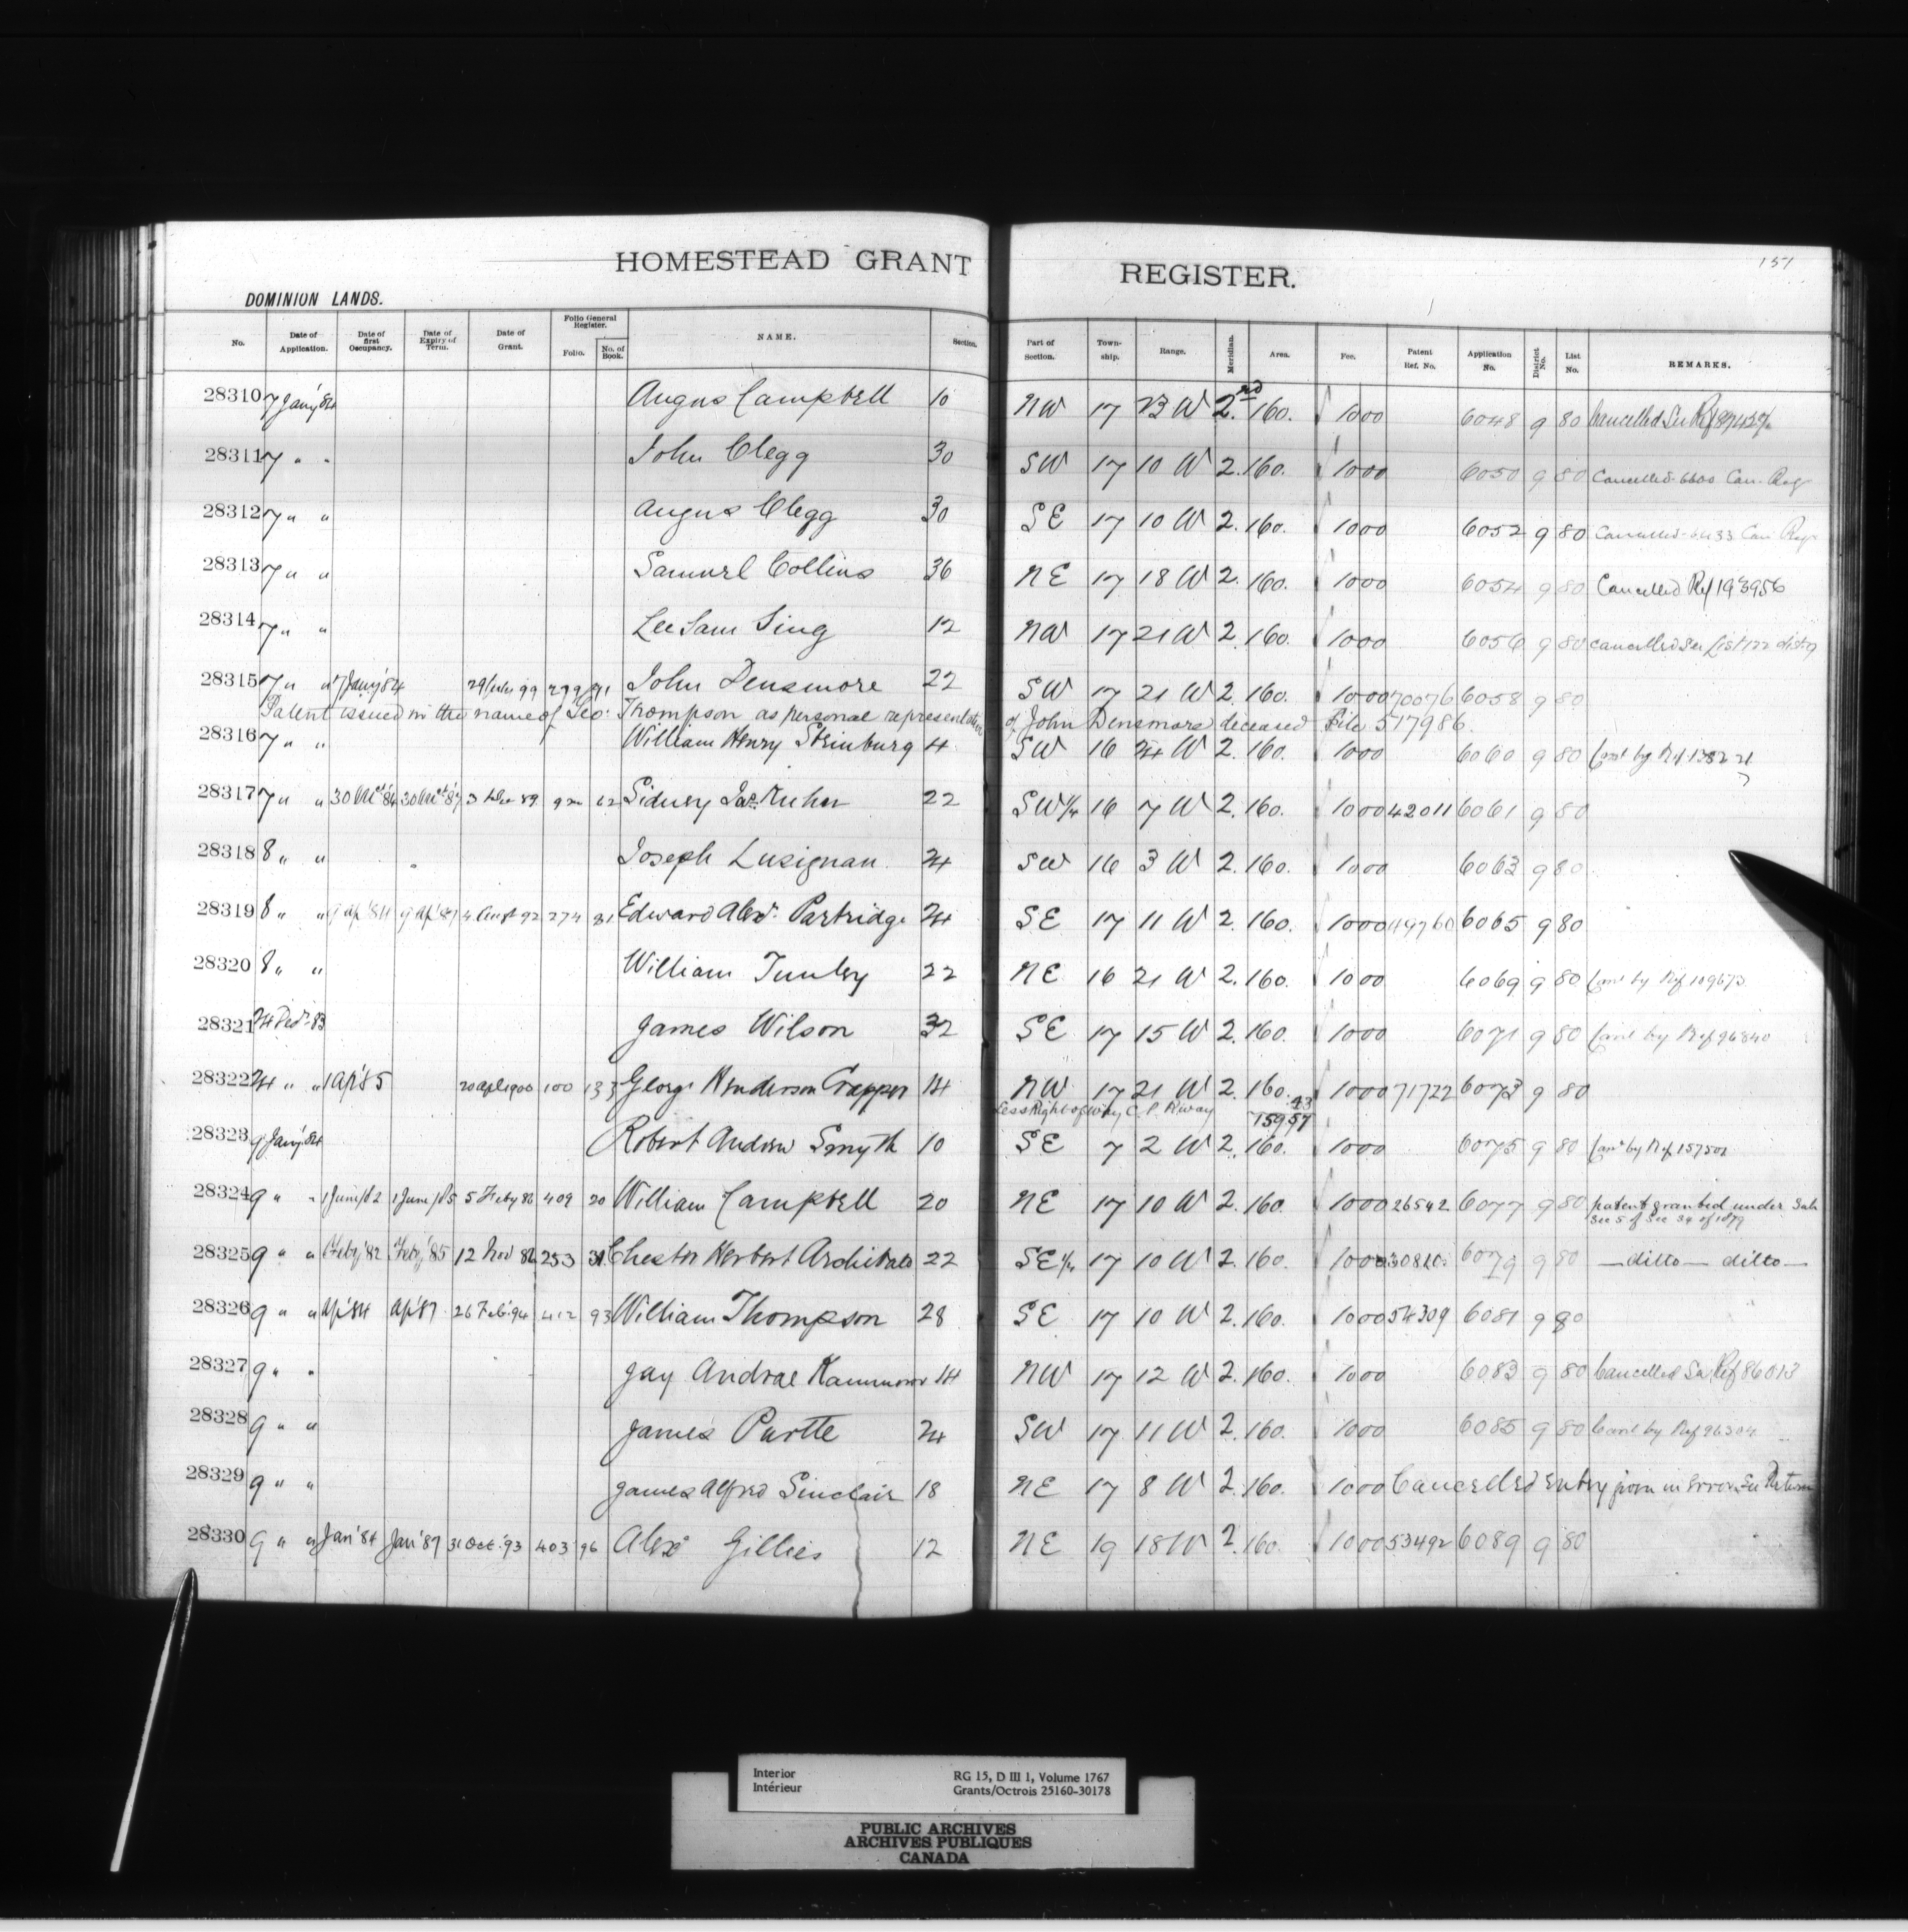 HOMESTEAD GRANT REGISTER.
151
DOMINION LANDS.
No. Date of Application. Date of first Occupancy. Date of Expiry of Term. Date of Grant. Folio General Register. Folio. No. of Book. NAME. Section. Part of Section. Township. Range. Meridian. Area. Fee. Patent Ref. No. Application No. District No. List No. REMARKS.
28310 7 Jany '84 Angus Campbell 10 NW 17 23 W 2nd 160. 1000 6048 9 80 Cancelled See Ref
28311 7 " " John Clegg 30 SW 17 10 W 2. 160. 1000 6050 9 80 Cancelled 6600 Can. Reg
28312 7 " " Angus Clegg 30 SE 17 10 W 2. 160. 1000 6052 9 80 Cancelled Can Reg
28313 7 " " Samuel Collins 36 NE 17 18 W 2. 160. 1000 6054 9 80 Cancelled Ref 193956
28314 7 " " Lee Sam Sing 12 NW 17 21 W 2. 160. 1000 6056 9 80 Cancelled See List 122 dist 9
28315 7 " " 7 Jany '84 99 299 91 John Densmore 22 SW 17 21 W 2. 160. 1000 70076 6058 9 80
Patent issued in the name of Geo. Thompson as personal representative of John Densmore deceased File 517986.
28316 7 " " William Henry Steinburg 4 SW 16 24 W 2. 160. 1000 6060 9 80 Canl by Ref 138221
28317 7 " " 30 Oct '84 30 Oct '87 3 89 62 Sidney Jas. Kuhn 22 SW 1/4 16 7 W 2. 160. 1000 42011 6061 9 80
28318 8 " " Joseph Lusignan 24 SW 16 3 W 2. 160. 1000 6063 9 80
28319 8 " " 9 Ap '84 9 Ap '87 4 Augst 92 274 81 Edward Alexr. Partridge 24 SE 17 11 W 2. 160. 1000 49760 6065 9 80
28320 8 " " William Tunley 22 NE 16 21 W 2. 160. 1000 6069 9 80 Canl by Ref 109673
28321 24 Decr 83 James Wilson 32 SE 17 15 W 2. 160. 1000 6071 9 80 Canl by Ref 96840
28322 24 " " 1 Ap '85 20 Aple 1900 100 133 George Henderson Crapper 14 NW 17 21 W 2. 160. 1000 71722 6073 9 80
Less Right of Way C. P. Rway .43 159.57
28323 9 Jany '84 Robert Andrew Smyth 10 SE 7 2 W 2. 160. 1000 6075 9 80 Canl by Ref 157501
28324 9 " " 1 June /82 1 June /85 5 Feby 86 409 20 William Campbell 20 NE 17 10 W 2. 160. 1000 26542 6077 9 80 patent granted under Sub
Sec 5 of Sec 34 of 1879
28325 9 " " Feby '82 Feby '85 12 Nov 86 253 31 Chester Herbert Archibald 22 SE 1/4 17 10 W 2. 160. 1000 30820 6079 9 80 — ditto — ditto —
28326 9 " " Ap '84 Ap '87 26 Feb. 94 412 93 William Thompson 28 SE 17 10 W 2. 160. 1000 54309 6081 9 80
28327 9 " " Jay Andrae 14 NW 17 12 W 2. 160. 1000 6083 9 80 Cancelled See Ref 86013
28328 9 " " James Purtle 24 SW 17 11 W 2. 160. 1000 6085 9 80 Canl by Ref 96304
28329 9 " " James Alfred Sinclair 18 NE 17 8 W 2. 160. 1000 Cancelled Entry given in Error See Return
28330 9 " " Jan '84 Jan '87 31 Oct. '93 403 96 Alexr Gillies 12 NE 19 18 W 2. 160. 1000 53492 6089 9 80
Interior
Intérieur
RG 15, D III 1, Volume 1767
Grants/Octrois 25160-30178
PUBLIC ARCHIVES
ARCHIVES PUBLIQUES
CANADA